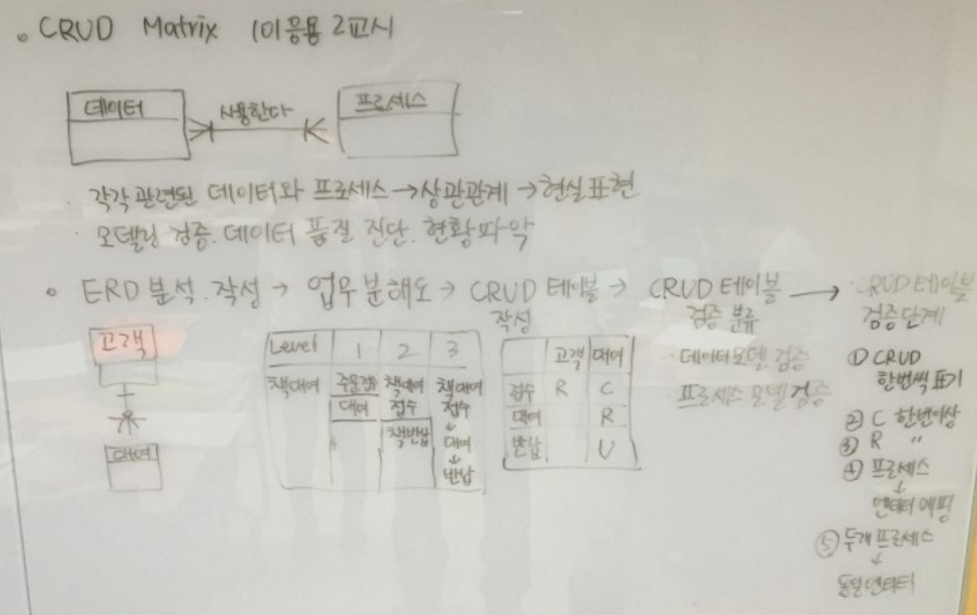 CRUD Matrix 101응용 2교시
데이터 사용한다 프로세스
각각 관련된 데이터와 프로세스→상관관계→현실표현
모델링 검증. 데이터 품질 진단. 현황파악
ERD 분석. 작성 → 업무분해도 → CRUD 테이블 작성 → CRUD 테이블 검증 분류 → CRUD 테이블 검증단계
고객
대여
Level 1 2 3
책대여 주문접수 책대여 책대여
대여 접수 접수
책반납 ↓ 대여
↓ 반납
고객 대여
접수 R C
대여 R
반납 U
· 데이터모델 검증
· 프로세스 모델 검증
① CRUD
한번씩 표기
② C 한번이상
③ R 〃
④ 프로세스
↓
엔터티 매핑
⑤ 두개 프로세스
↓
동일 엔터티